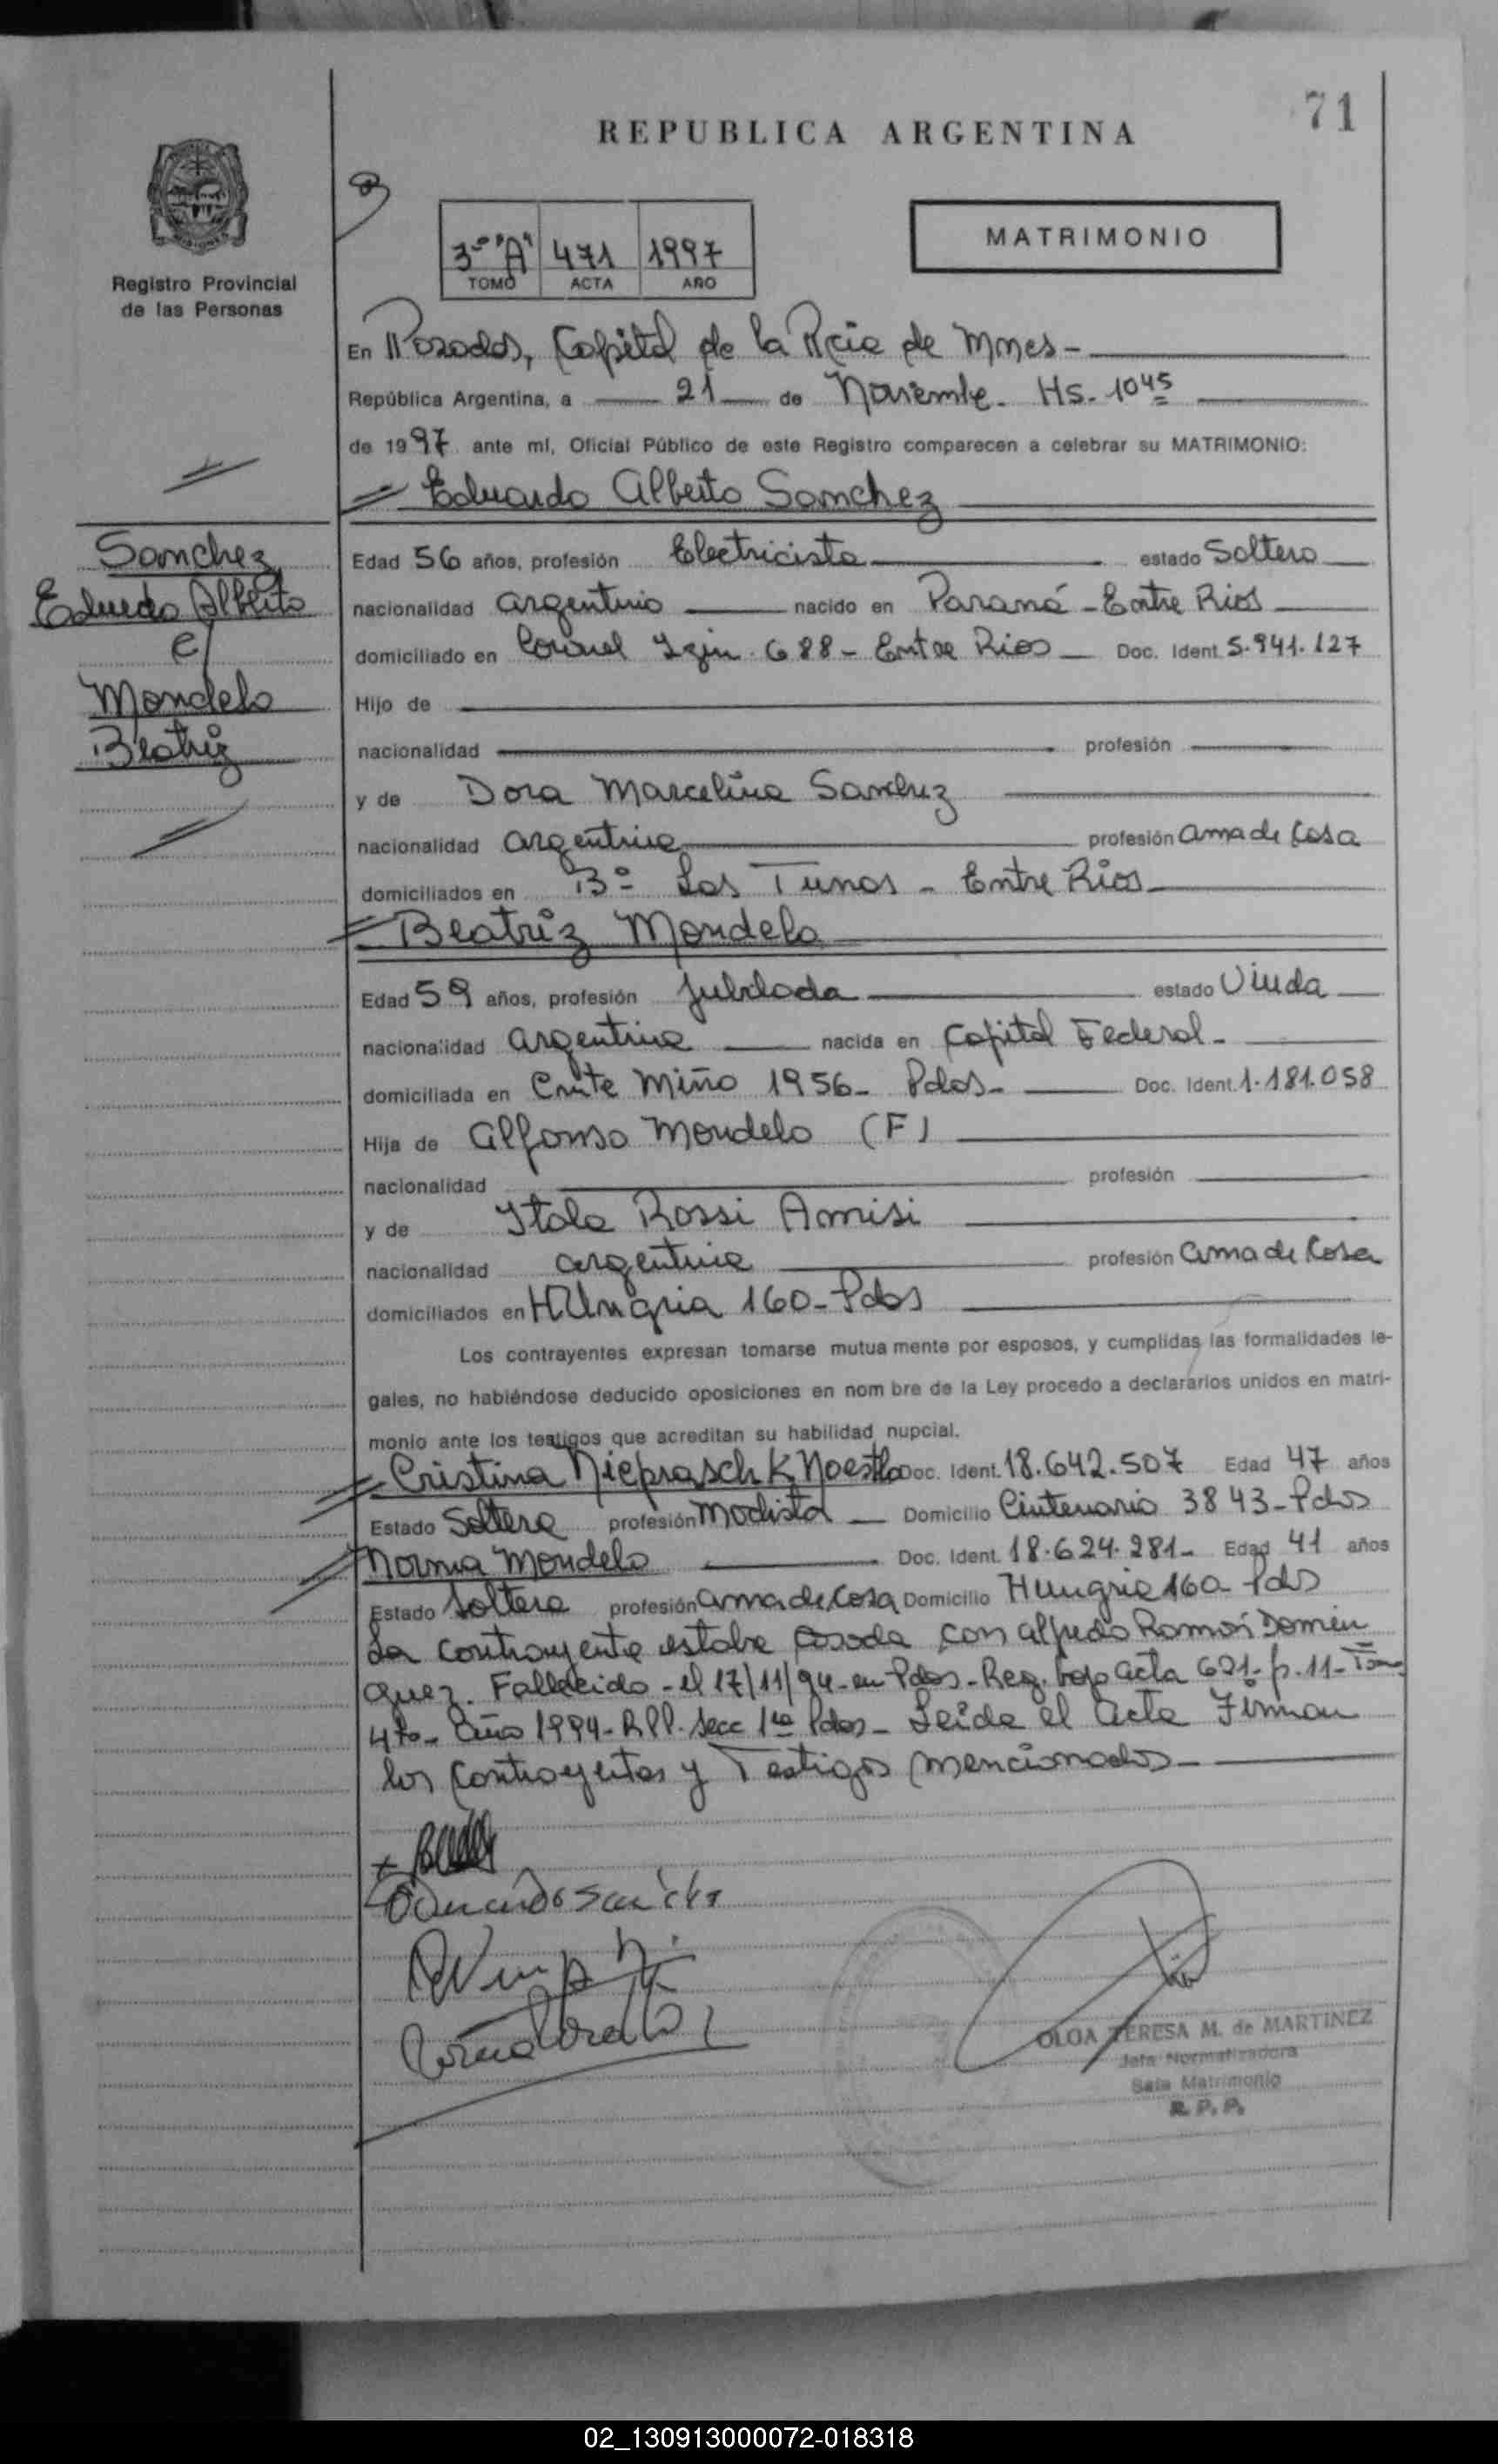 71
REPUBLICA ARGENTINA
MATRIMONIO
3º "A" 471 1997
TOMO ACTA AÑO
Registro Provincial
de las Personas
En Posadas, Capital de la Pcia de Mnes -
República Argentina, a 21 de Noviembre. Hs. 10 45
de 1997 ante mí, Oficial Público de este Registro comparecen a celebrar su MATRIMONIO:
Eduardo Alberto Sanchez
Sanchez
Eduardo Alberto
c/
Mondelo
Beatriz
Edad 56 años, profesión Electricista estado Soltero
nacionalidad argentino nacido en Paraná - Entre Rios
domiciliado en 688 - Entre Rios Doc. Ident. 5.941.127
Hijo de
nacionalidad profesión
y de Dora Marcelina Sanchez
nacionalidad argentina profesión ama de casa
domiciliados en Bº Las Tunas - Entre Rios
Beatriz Mondelo
Edad 59 años, profesión Jubilada estado Viuda
nacionalidad argentina nacida en Capital Federal -
domiciliada en Cnte Miño 1956 - Pdas - Doc. Ident. 1.181.058
Hija de Alfonso Mondelo (F)
nacionalidad profesión
y de Itala Rossi Amisi
nacionalidad argentina profesión ama de Casa
domiciliados en Hungria 160 - Pdas
Los contrayentes expresan tomarse mutua mente por esposos, y cumplidas las formalidades le-
gales, no habiéndose deducido oposiciones en nom bre de la Ley procedo a declararlos unidos en matri-
monio ante los testigos que acreditan su habilidad nupcial.
Cristina Doc. Ident. 18.642.507 Edad 47 años
Estado Soltera profesión Modista Domicilio Centenario 3843 - Pdas
Norma Mondelo Doc. Ident. 18.624.281 - Edad 41 años
Estado Soltera profesión ama de casa Domicilio Hungria 160 - Pdas
La contrayente estaba casada con Alfredo Ramon Domin
guez. Fallecido - el 17/11/94 - en Pdas - Reg. bajo acta 621 - f. 11 - Tomo
4to - Año 1994 - R.P.P. Secc 1ra Pdas - Leida el Acta Firman
los contrayentes y Testigos mencionados -
Eduardo Sanchez
OLGA TERESA M. de MARTINEZ
Jefa Normatizadora
Sala Matrimonio
R. P. P.
02_130913000072-018318